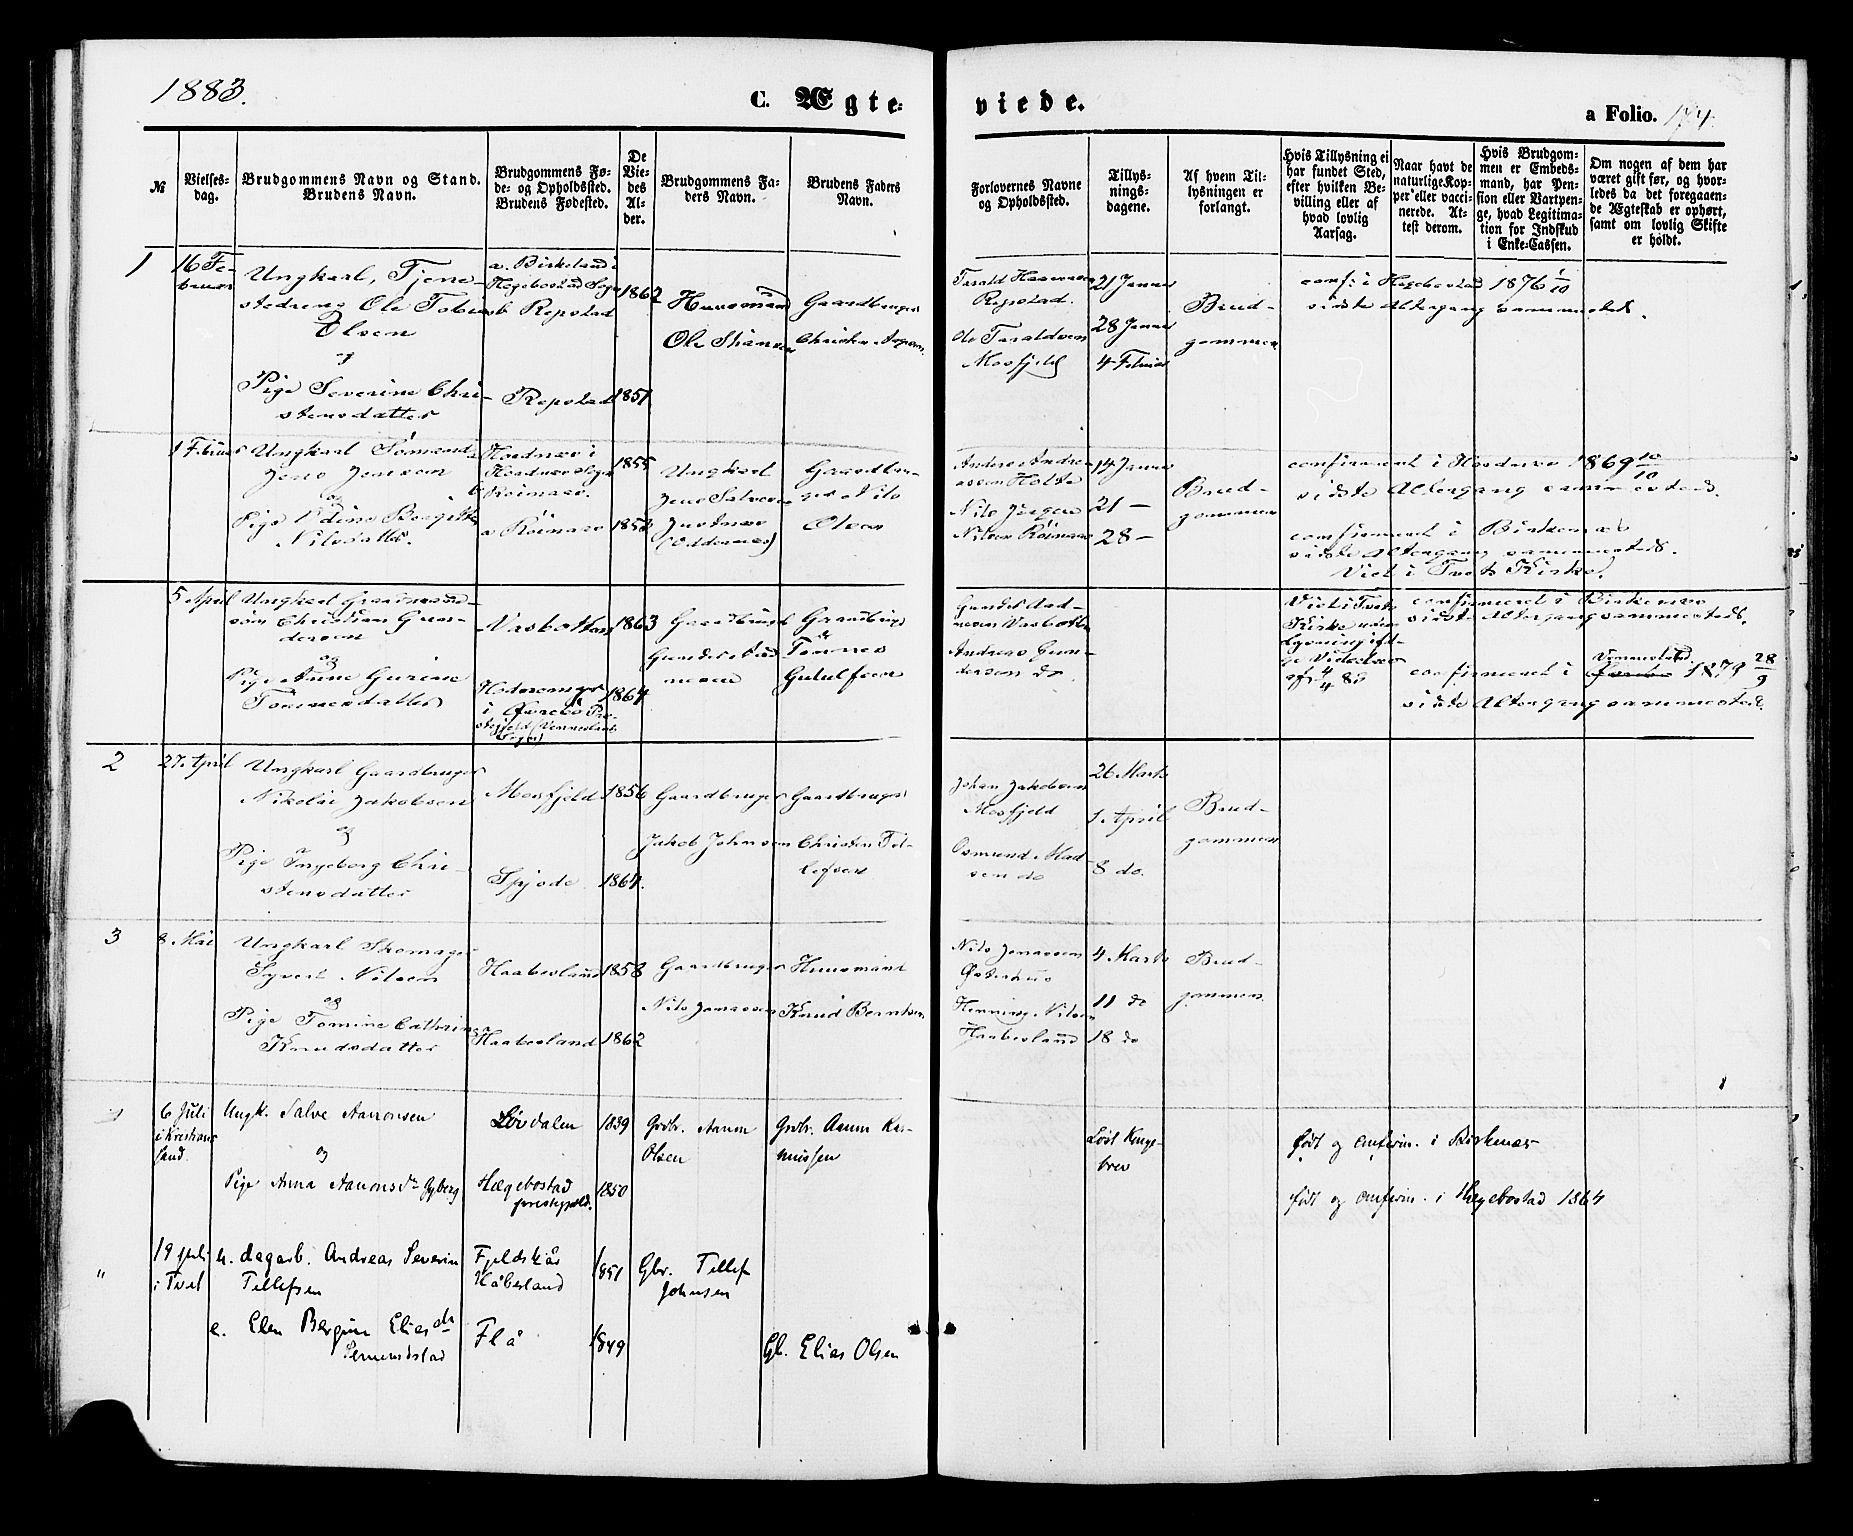 1883.
C. Ægte-
viede.
a Folio. 174.
№
Vielses-
dag.
Brudgommens Navn og Stand.
Brudens Navn.
Brudgommens Fø-
de- og Opholdssted.
Brudens Fødested.
De
Vie-
des
Al-
der.
Brudgommens Fa-
ders Navn.
Brudens Faders
Navn.
Forlovernes Navne
og Opholdssted.
Tillys-
nings-
dagene.
Af hvem Til-
lysningen er
forlangt.
Hvis Tillysning ei
har fundet Sted,
efter hvilken Be-
villing eller af
hvad lovlig
Aarsag.
Naar havt de
naturlige Kop-
per eller vacci-
nerede. At-
test derom.
Hvis Brudgom-
men er Embeds-
mand, har Pen-
sion eller Vartpen-
ge, hvad Legitima-
tion for Indskud
i Enke-Cassen.
Om nogen af dem har
været gift før, og hvor-
ledes da det foregaaen-
de Ægteskab er ophørt,
samt om lovlig Skifte
er holdt.
1
16 Fe-
bruar
Ungkarl, Tjene-
stedreng Ole Tobias
Olsen
og
Pige Severine Chri-
stensdatter
a. Birkeland i
Hegebostad Sogn
b Repstad
Repstad
1862
1851
Huusmand
Ole Hansen
Gaardbruger
Christen
Tarald
Repstad.
do Taraldsen
Mosfjeld
21 Januar
28 Januar
4 Februar
Brud-
gommen
conf: i Hegebostad 1876 1/10
sidste Altergang sammesteds.
1 Februar
Ungkarl Tømmermand
Jens Jensen
og
Pige Udine Bergitte
Nilsdatter.
i
b
a
1855
1853
Ungkarl
Jens Salvesen
(Oddernes)
Gaardbru-
ger Nils
Olsen
Anders Andre-
assen Holte
Nils Jørgen
Nilsen
14 Januar
21 —
28 —
Brud-
gommen
confirmeret i 1869 10/10
sidste Altergang sammesteds.
confirmeret i Birkenæs
sidste Altergang sammesteds.
Viet i Tveit Kirke.
5 April
Ungkarl Gaardmands-
søn Christian Gun-
dersen
og
Pige Anne Gurine
Tønnesdatter
Vasbotten
i Øvrebø Præ-
stegjeld (Vennesland
Sogn)
1863
1864
Gaardbruger
Gunder Aad-
nesen
Gaardbruger
Tønnes
Gutulfsen
Gunder Aad-
nesen Vasbotten
Andreas Gun-
dersen do
Viet i Tveits
Kirke uden
Lysning iføl-
ge
af 4/4 83
confirmeret i Birkenæs
sidste Altergang sammesteds.
confirmeret i Vennesland 1879 28/9
sidste Altergang sammesteds.
2
27. April
Ungkarl Gaardbruger
Nikolai Jakobsen
og
Pige Ingeborg Chri-
stensdatter
Mosfjeld
Spjode
1856
1864.
Gaardbruger
Jakob Johnsen
Gaardbruger
Christen Til-
lefsen
Johan Jakobsen
Mosfjeld
Osmund Mad-
sen do
26 Marts
1 April
8 do.
Brud-
gommen
3
8. Mai
Ungkarl Skomager
Syvert Nilsen
og
Pige Tomine Cathrine
Knudsdatter
Haabesland
Haabesland
1858
1862
Gaardbruger
Nils Jonassen
Huusmand
Knud Berntsen
Nils Jonassen
Østerhus
Henning Nilsen
Haabesland
4 Marts
11 do
18 do
Brud-
gommen.
6 Juli
i Kristian-
sand.
Ungk. Salve Aanonsen
og
Pige Anna Aanonsdr Gyberg
Lövdalen
Hægebostad
prestegjeld.
1839
1850
Grdbr. Aanon
Olsen
Grdbr. Aanon Ras-
mussen
Løst Konge-
brev
født og confirm. i Birkenæs
født og confirm. i Hegebostad 1864
"
19 juli
i Tvet
u. dagarb. Andreas Severin
Tellefsen
e. Elen Bergine Eliasdtr
Semundstad
Fjeldskår
Håbesland
Flå
1851
1849
Gbr. Tellef
Johnsen
Gb. Elias Olsen